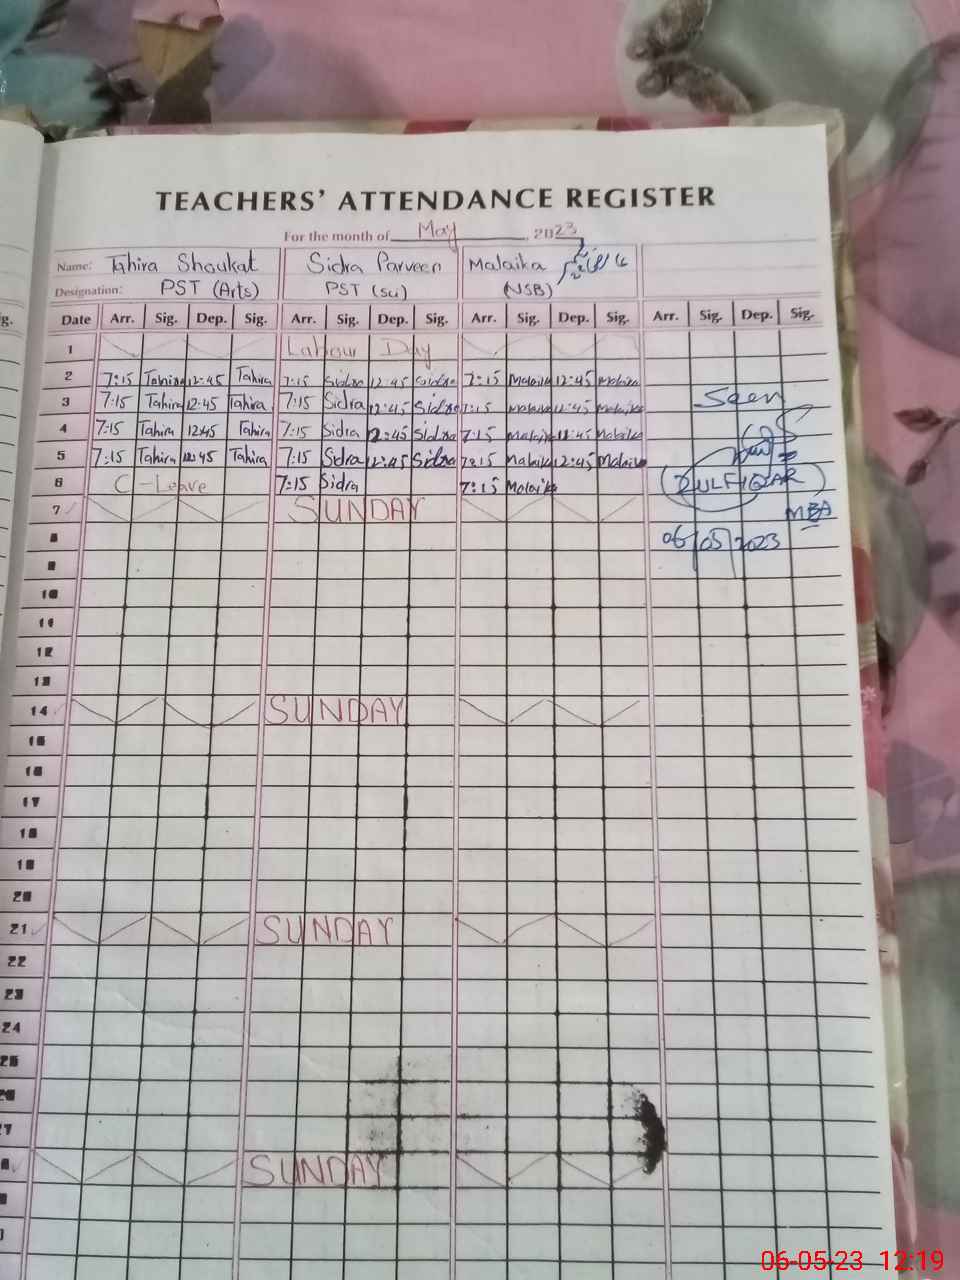 TEACHERS' ATTENDANCE REGISTER
For the month of May, 2023
Name: Tahira Shoukat Sidra Parveen Malaika
Designation: PST (Arts) PST (Sci) (NSB)
g. Date Arr. Sig. Dep. Sig. Arr. Sig. Dep. Sig. Arr. Sig. Dep. Sig. Arr. Sig. Dep. Sig.
1 Labour Day
2 7:15 Tahira 12:45 Tahira 7:15 Sidra 12:45 Sidra 7:15 Malaika 12:45 Malaika
3 7:15 Tahira 12:45 Tahira 7:15 Sidra 12:45 Sidra 7:15 Malaika 12:45 Malaika Seen
4 7:15 Tahira 12:45 Tahira 7:15 Sidra 12:45 Sidra 7:15 Malaika 12:45 Malaika
5 7:15 Tahira 12:45 Tahira 7:15 Sidra 12:45 Sidra 7:15 Malaika 12:45 Malaika
6 C-Leave 7:15 Sidra 7:15 Malaika (ZULFIQAR)
7 SUNDAY MEA
8 06/05/2023
9
10
11
12
13
14 SUNDAY
15
16
17
18
19
20
21 SUNDAY
22
23
24
25
26
27
SUNDAY
06-05-23 12:19